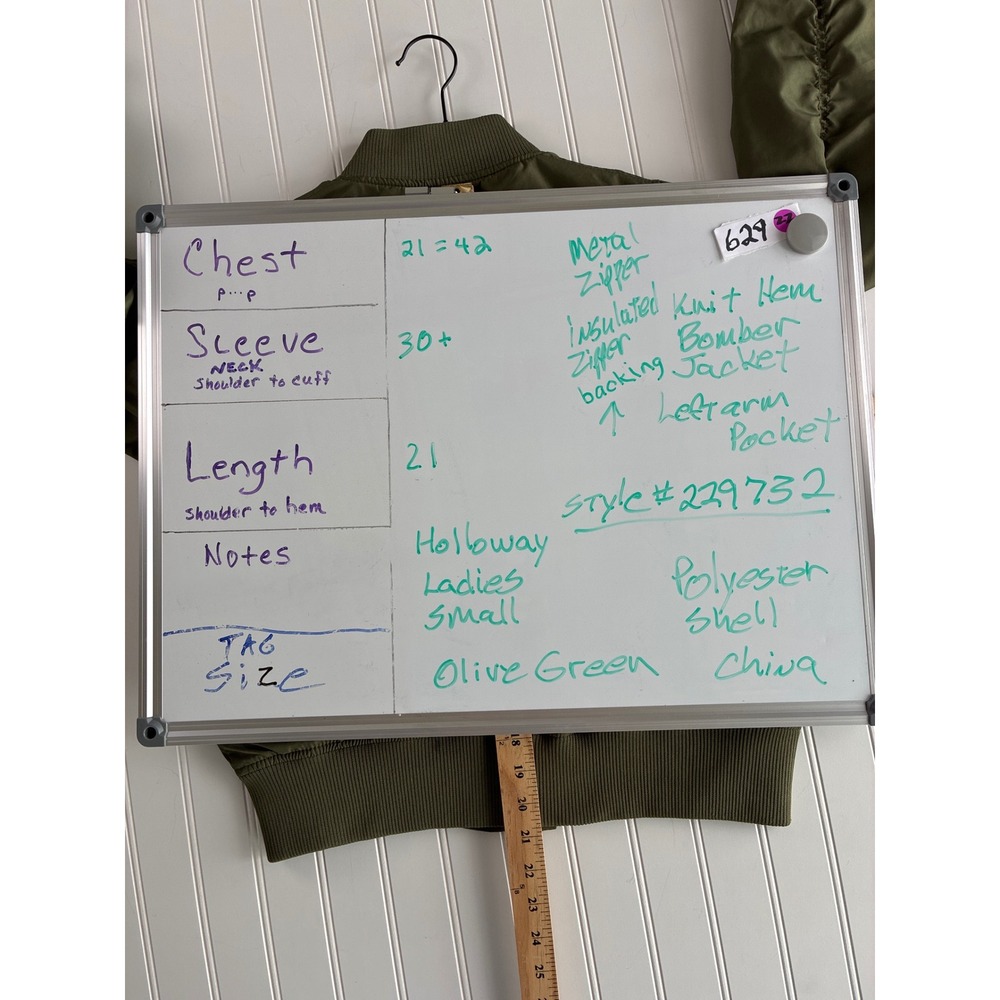 Chest
P...P
21 = 42
Sleeve
NECK
Shoulder to cuff
30+
Length
Shoulder to hem
21
Notes
Holloway
Ladies
Small
TAG
Size
Olive Green
Metal
Zipper
insulated
Zipper
backing
↑
629 22
Knit Hem
Bomber
Jacket
Left arm
Pocket
Style # 229732
Polyester
Shell
China
18
19
20
21
22
23
24
25